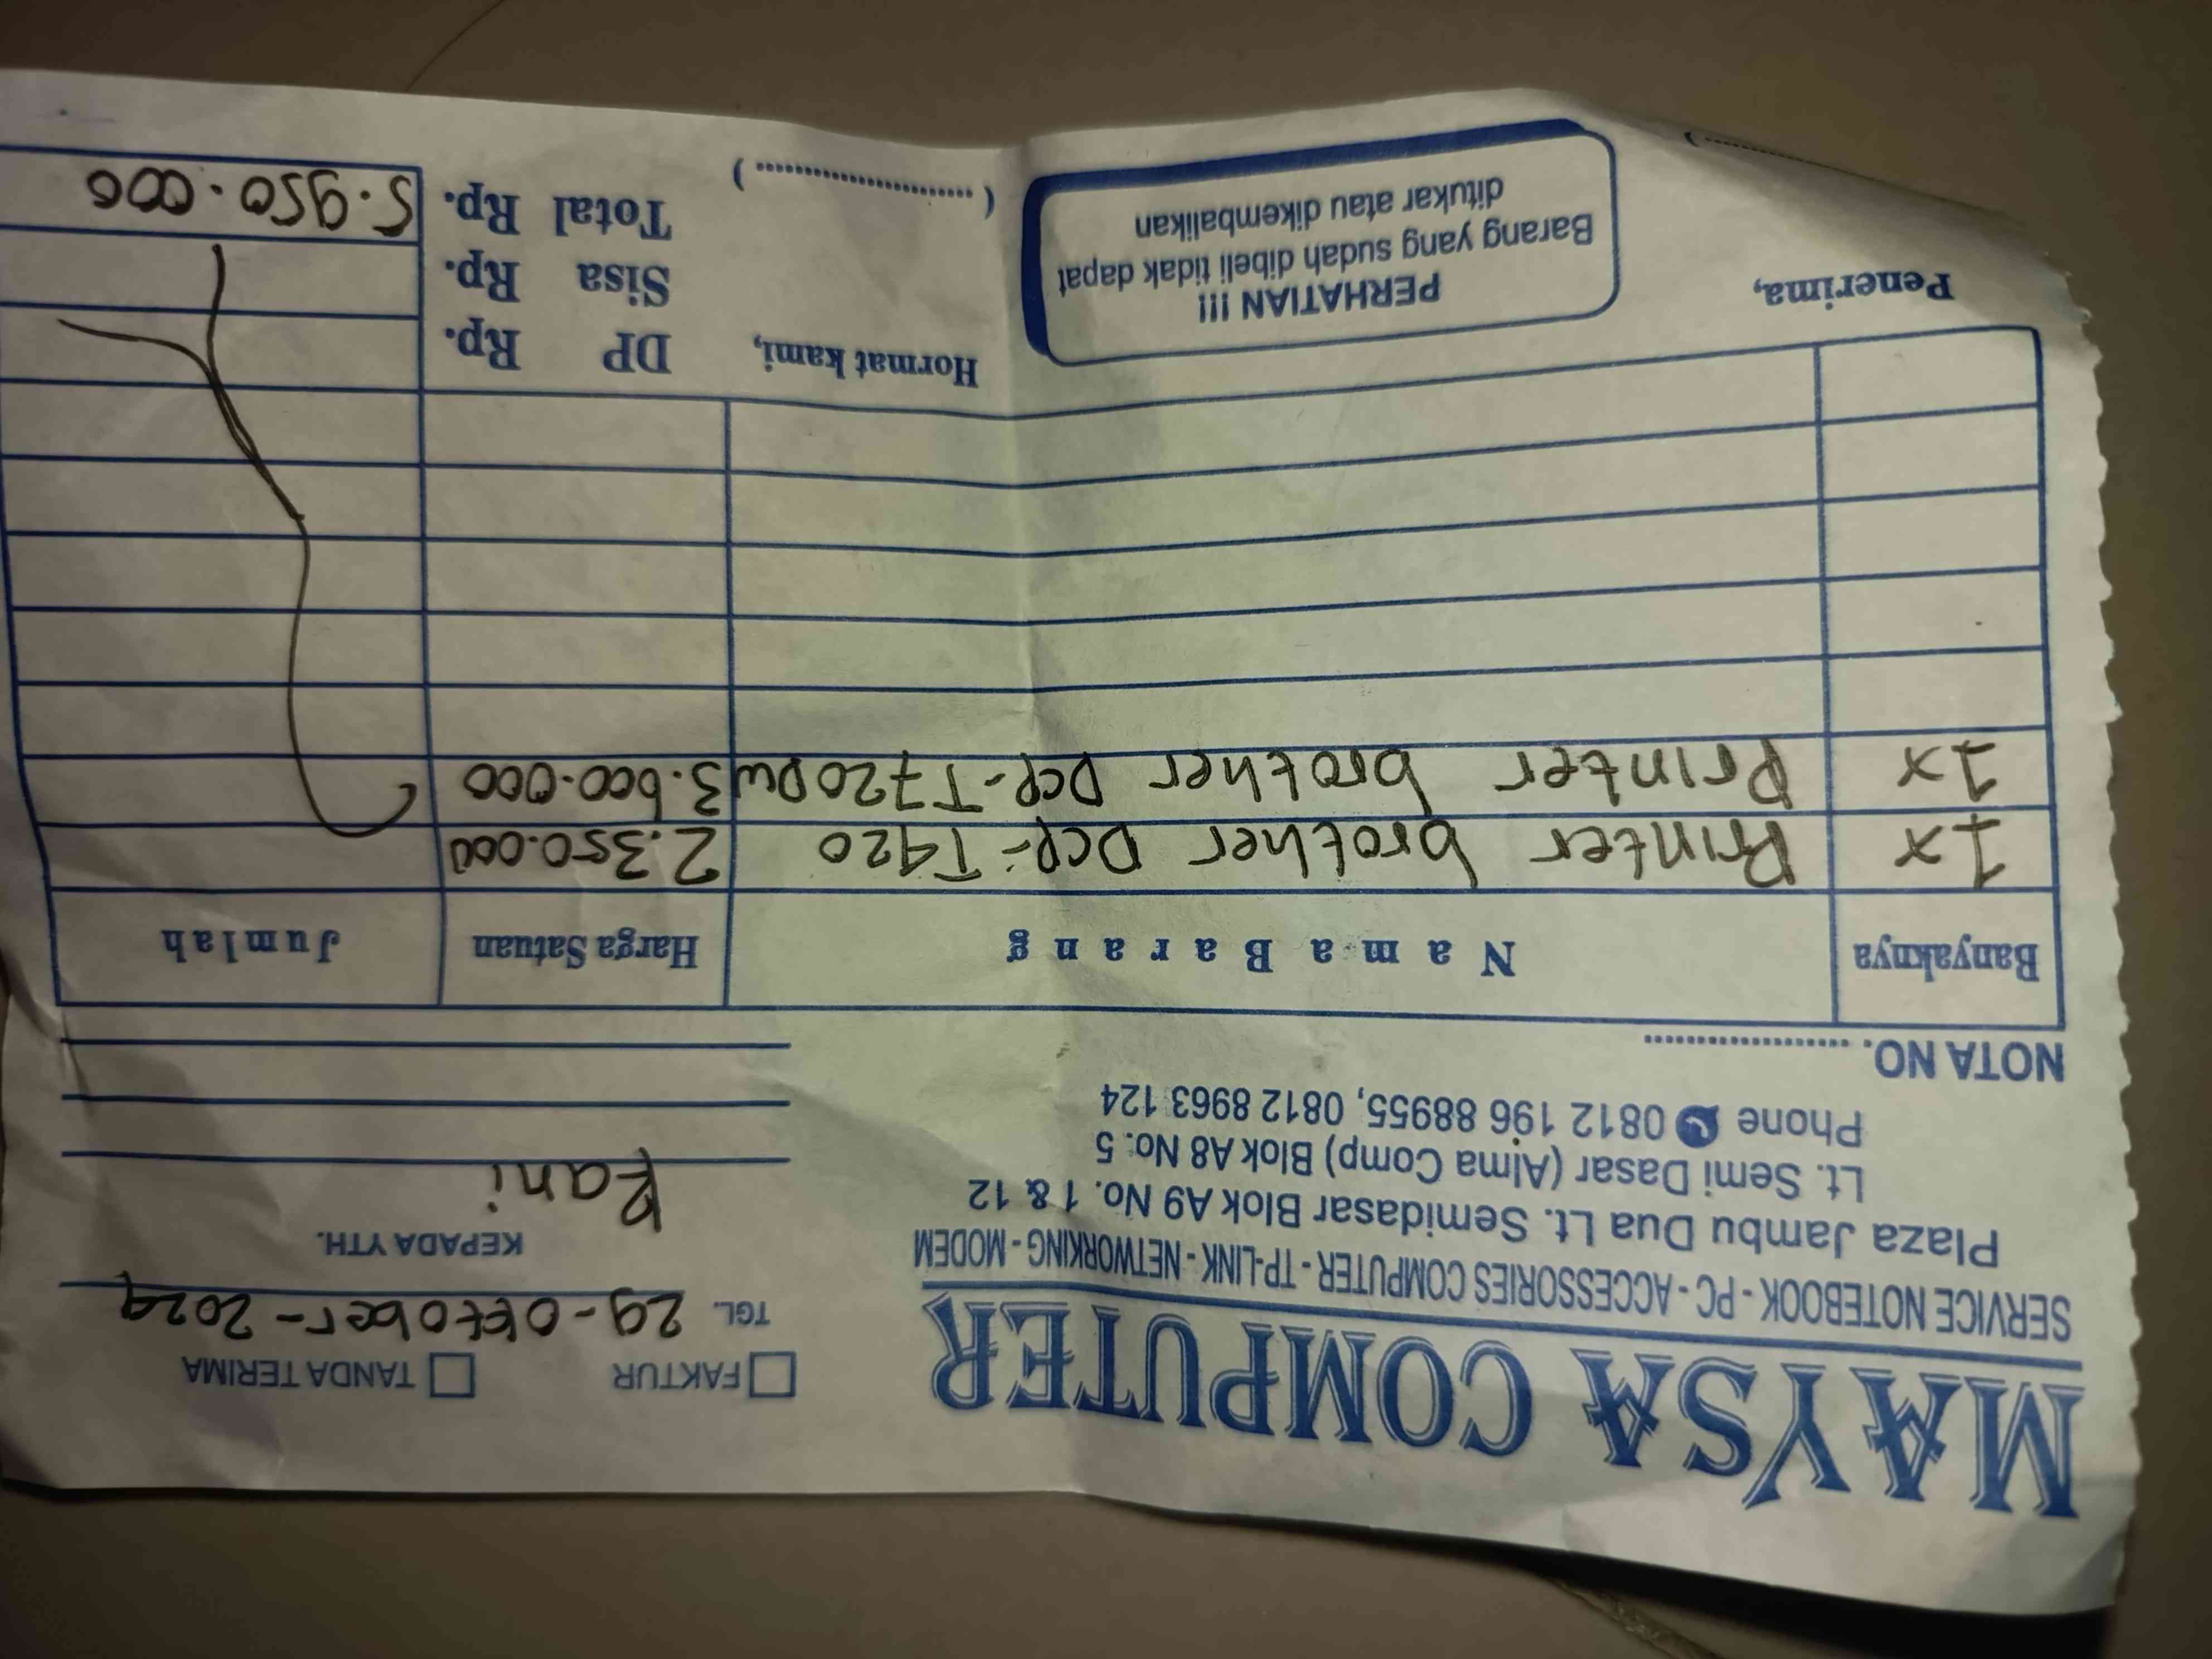 MAYSA COMPUTER
SERVICE NOTEBOOK - PC - ACCESSORIES COMPUTER - TP-LINK - NETWORKING - MODEM
Plaza Jambu Dua Lt. Semidasar Blok A9 No. 1 & 12
Lt. Semi Dasar (Alma Comp) Blok A8 No. 5
Phone 0812 196 88955, 0812 8963 124
NOTA NO. ....................
FAKTUR TANDA TERIMA
TGL. 29-Oktober-2024
KEPADA YTH.
Rani
Banyaknya Nama Barang Harga Satuan Jumlah
1x Printer brother Dcp-T420 2.350.000
1x Printer brother Dcp-T720Dw 3.600.000
Penerima,
PERHATIAN !!!
Barang yang sudah dibeli tidak dapat
ditukar atau dikembalikan
Hormat kami,
( ........................ )
DP Rp.
Sisa Rp.
Total Rp. 5.950.000